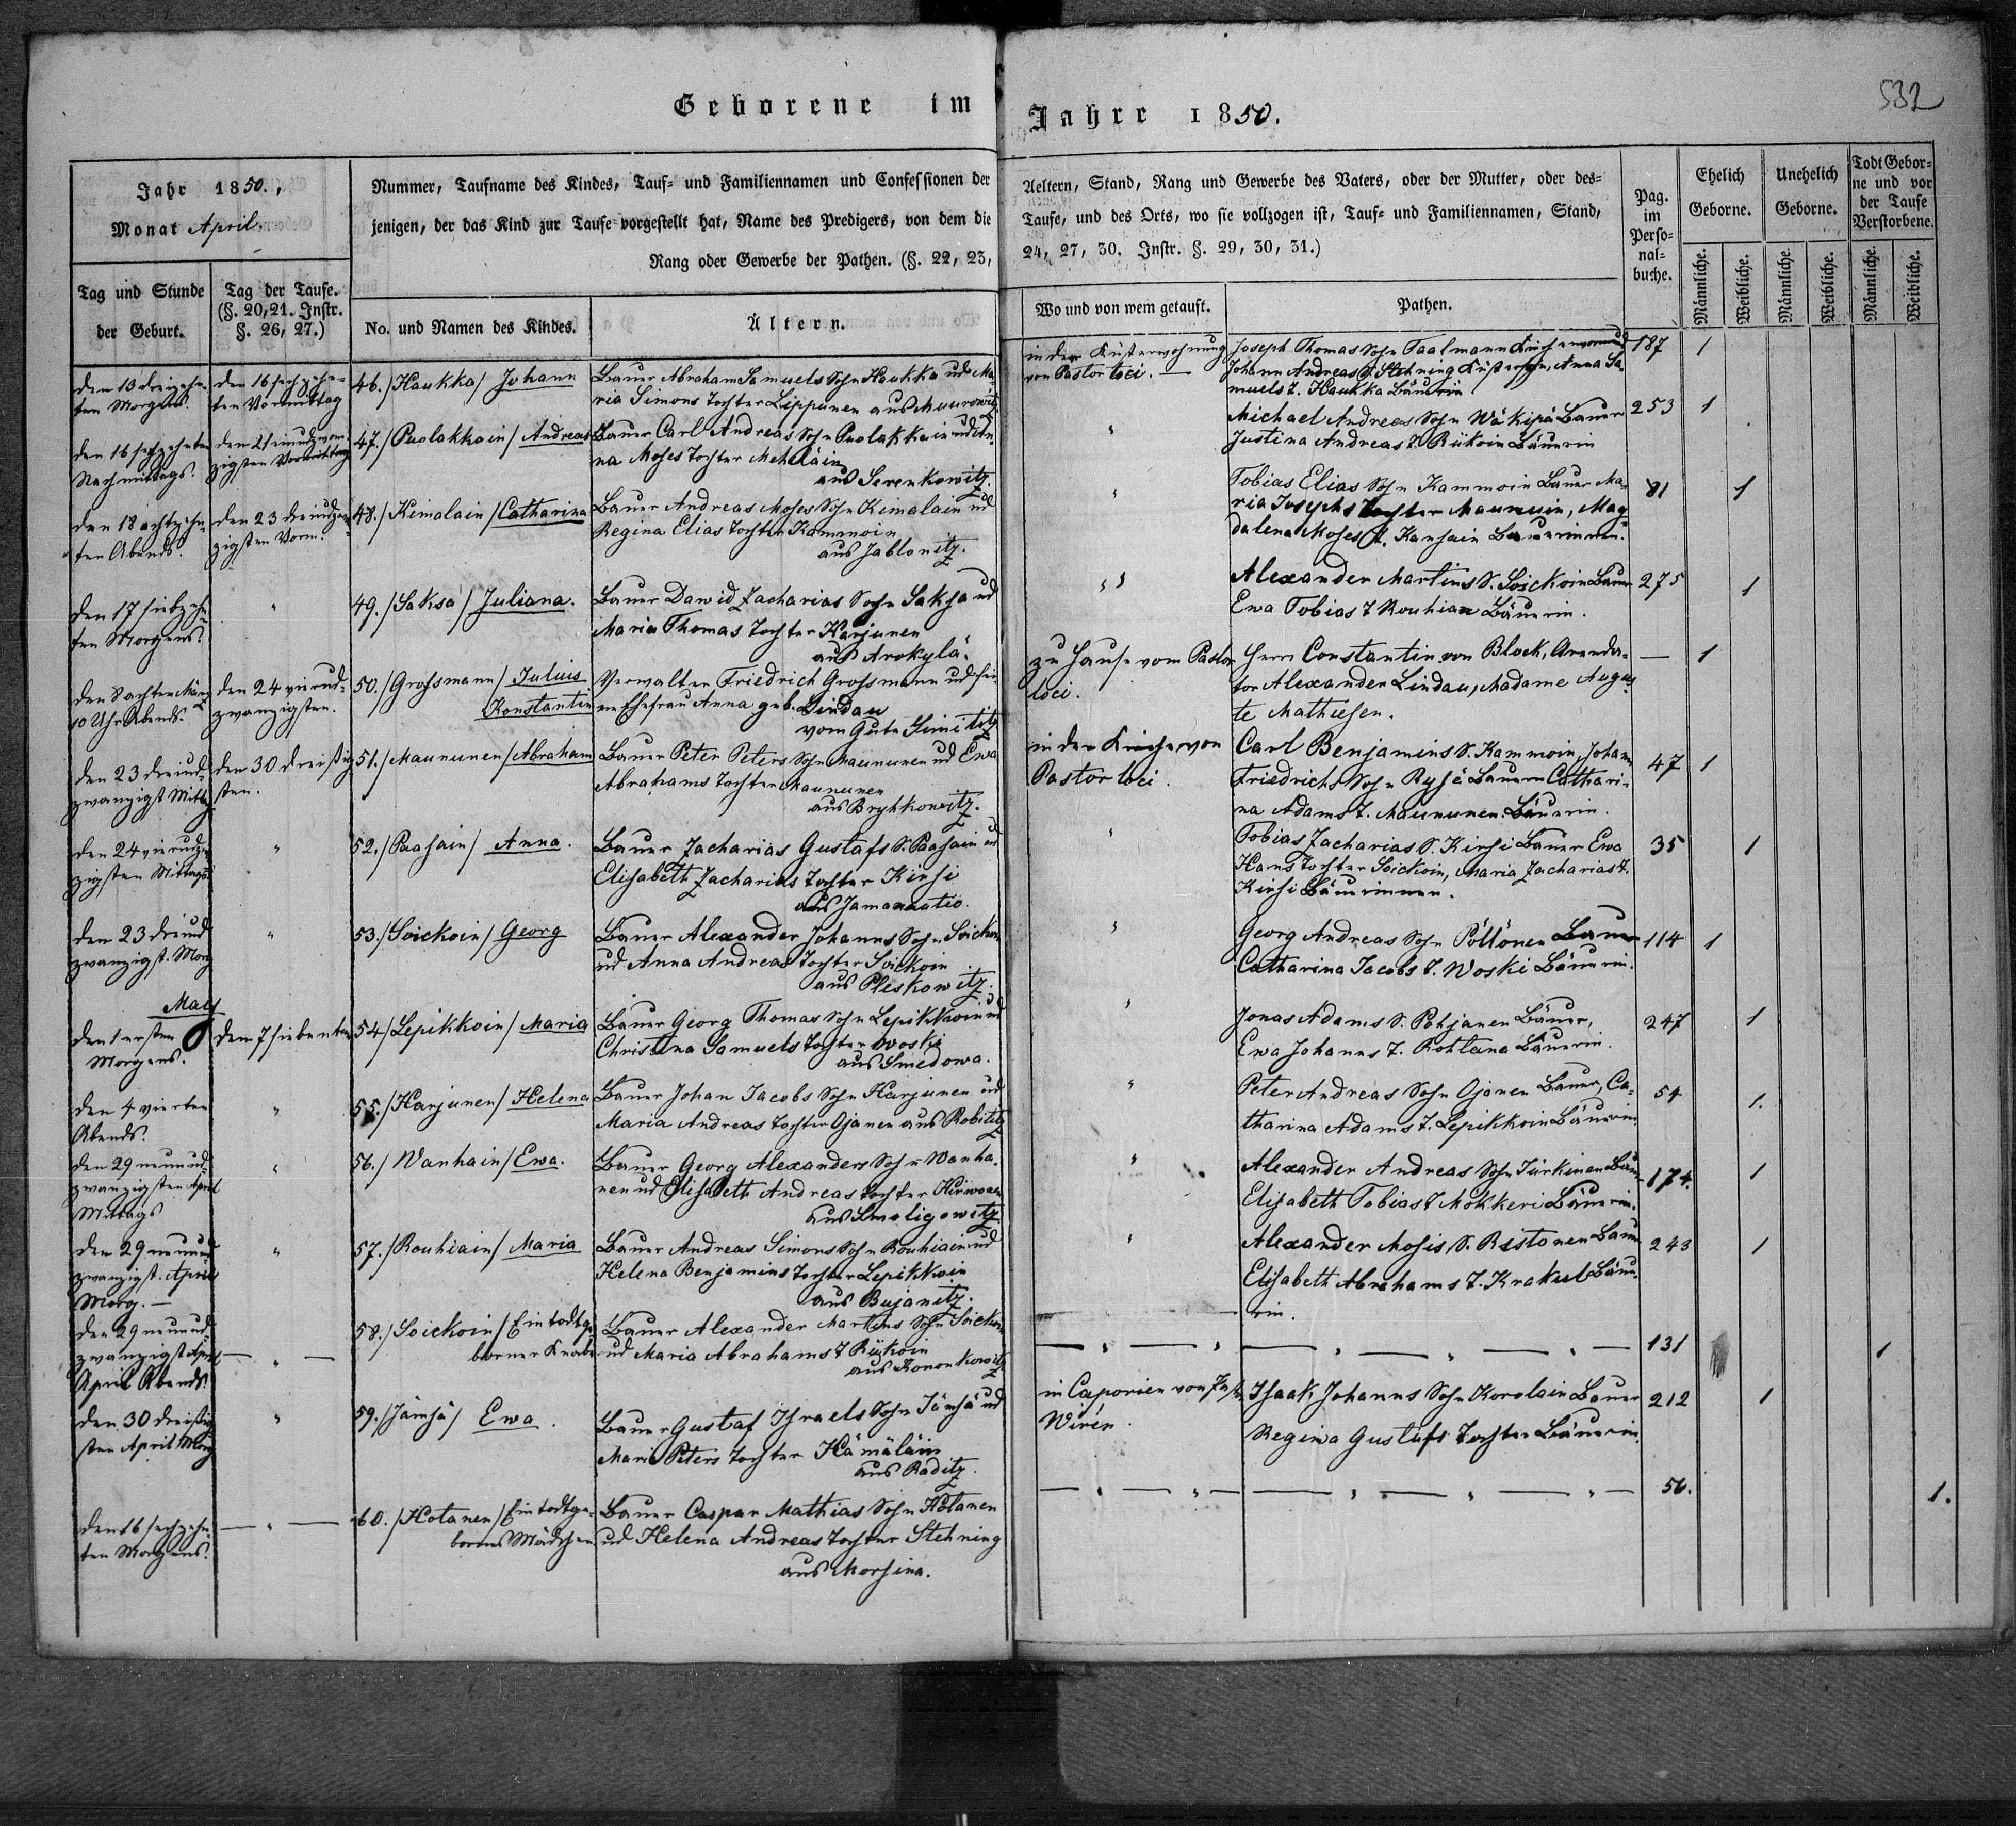 Geborene im Jahre 1850.
532
Jahr 1850.,
Monat April.
Tag und Stunde
der Geburt.
Tag der Taufe.
(§. 20, 21. Instr.
§. 26, 27.)
Nummer, Taufname des Kindes, Tauf- und Familiennamen und Confessionen der
jenigen, der das Kind zur Taufe vorgestellt hat, Name des Predigers, von dem die
Rang oder Gewerbe der Pathen. (§. 22, 23,
No. und Namen des Kindes.
Ältern.
Aeltern, Stand, Rang und Gewerbe des Vaters, oder der Mutter, oder des-
Taufe, und des Orts, wo sie vollzogen ist, Tauf- und Familiennamen, Stand,
24, 27, 30. Instr. §. 29, 30, 31.)
Wo und von wem getauft.
Pathen.
Pag.
im
Perso-
nal-
buche.
Ehelich
Geborne.
Unehelich
Geborne.
Todt Gebor-
ne und vor
der Taufe
Verstorbene.
Männliche.
Weibliche.
Männliche.
Weibliche.
Männliche.
Weibliche.
den 13 dreizehn-
ten Morgens.
den 16 sechzehn-
ten Vormittag
46. /Haukka/ Johann
Bauer Abraham Samuels Sohn Haukka und Ma-
ria Simons Tochter Lippunen aus Muurowitz
in der Küsterwohnung
von Pastor loci. —
Joseph Thomas Sohn Taalmann Kirchenvormund
Johann Andreas S. Stehning Küster, Anna Sa-
muels T. Haukka Bäuerin
187
1
den 16 sechzehnten
Nachmittags.
den 21 einundzwan-
zigsten Vormittag
47. /Puolakkain/ Andreas
Bauer Carl Andreas Sohn Puolakkain und An-
na Moses Tochter Mehiläin
aus Serenkowitz.
"
Michael Andreas Sohn Wäkipä Bauer
Justina Andreas T. Rükoin Bäuerin
253
1
den 18 achtzehn-
ten Abends.
den 23 dreiundzwan-
zigsten Vorm.
48. /Kimalain/ Catharina
Bauer Andreas Moses Sohn Kimalain und
Regina Elias Tochter Kammoin
aus Jablonitz.
"
Tobias Elias Sohn Kammoin Bauer Ma-
ria Josephs Tochter Maunuin, Mag-
dalena Moses T. Kansain Bäuerinnen.
81
1
den 17 siebzehn-
ten Morgens.
"
49. /Saksa/ Juliana.
Bauer Dawid Zacharias Sohn Saksa und
Maria Thomas Tochter Karjunen
aus Arokylä.
"
Alexander Martins S. Soickoin Bauer
Ewa Tobias T. Rouhian Bäuerin.
275
1
den 8 achten März
10 Uhr Abends.
den 24 vierund-
zwanzigsten.
50. /Grossmann/ Julius
Konstantin
Verwalter Friedrich Grossmann und sei-
ne Ehefrau Anna geb. Lindau
vom Gute Simititz
zu Hause vom Pastor
loci.
Herr Constantin von Block, Arenda-
tor Alexander Lindau, Madame Augus-
te Mathiesen.
—
1
den 23 dreiund-
zwanzigst. Mittag
den 30 dreißig-
sten.
51. /Maununen/ Abraham
Bauer Peter Peters Sohn Maununen und Ewa
Abrahams Tochter Maununen
aus Brykkowitz.
in der Kirche von
Pastor loci.
Carl Benjamins S. Kammoin, Johann
Friedrichs Sohn Rysä Bauern Cathari-
na Adams T. Maununen Bäuerin.
47
1
den 24 vierundzwan-
zigsten Mittags
"
52. /Paasain/ Anna.
Bauer Zacharias Gustafs S. Paasain und
Elisabeth Zacharias Tochter Kirsi
aus Jamanautio.
"
Tobias Zacharias S. Kirsi Bauer Ewa
Hans Tochter Soickoin, Maria Zacharias T.
Kirsi Bäuerinnen.
35
1
den 23 dreiund-
zwanzigst. Morg
"
53. /Soickoin/ Georg
Bauer Alexander Johanns Sohn Soickoin
und Anna Andreas Tochter Soickoin
aus Pleskowitz.
"
Georg Andreas Sohn Pöllönen Bauer
Catharina Jacobs T. Woski Bäuerin.
114
1
May
den 1 ersten
Morgens.
den 7 siebenten
54 /Lepikkoin/ Maria
Bauer Georg Thomas Sohn Lepikkoin und
Christina Samuels Tochter Woski
aus Smedowa.
"
Jonas Adams S. Pohjanen Bauer,
Ewa Johanns T. Rohtana Bäuerin.
247
1
den 4 vierten
Abends.
"
55. /Harjunen/ Helena
Bauer Johan Jacobs Sohn Harjunen und
Maria Andreas Tochter Ojanen aus Robititz
"
Peter Andreas Sohn Ojanen Bauer, Ca-
tharina Adams T. Lepikkoin Bäuerin.
54
1.
den 29 neunund-
zwanzigsten April
Mittags
"
56. /Wanhain/ Ewa.
Bauer Georg Alexanders Sohn Wanha-
nen und Elisabeth Andreas Tochter Hirwonen
aus Smoligowitz.
"
Alexander Andreas Sohn Türkinen Bauer
Elisabeth Tobias T. Mökkeri Bäuerin.
174.
1
den 29 neunund
zwanzigst. April
Morg. —
"
57. /Rouhiain/ Maria
Bauer Andreas Simons Sohn Rouhiain und
Helena Benjamins Tochter Lepikkoin
aus Bujanitz.
"
Alexander Mosis S. Ristonen Bauer
Elisabeth Abrahams T. Krakul Bäue-
rin.
243
1
den 29 neunund-
zwanzigst. April
April Abends.
— " —
58. /Soickoin/ Ein todtge-
borner Knabe
Bauer Alexander Martins Sohn Soickoin
und Maria Abrahams T. Rükoin
aus Kononkowitz
— " — "
— " — " — " —
131
1
den 30 dreißig-
sten April Morg
"
59. /Jämsä/ Ewa.
Bauer Gustaf Israels Sohn Jämsä und
Mari Peters Tochter Hämäläin
aus Raditz.
in Caporien von Past.
Wirén.
Isaak Johanns Sohn Korolain Bauer
Regina Gustafs Tochter Bäuerin.
212
1
den 16 sechzehn-
ten Morgens.
— " —
60. /Hotanen/ Ein todtge-
bornes Mädchen
Bauer Caspar Mathias Sohn Hotanen
und Helena Andreas Tochter Stehning
aus Morsina.
— " — " —
— " — " — " —
56.
1.